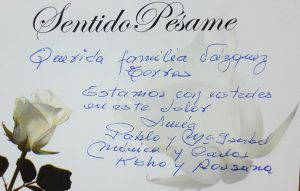 Sentido Pésame
Querida familia Vázquez
Torres
Estamos con ustedes
en este dolor
Pablo y Ma. Isabel
Mónica y Carlos
Koho y Rossana